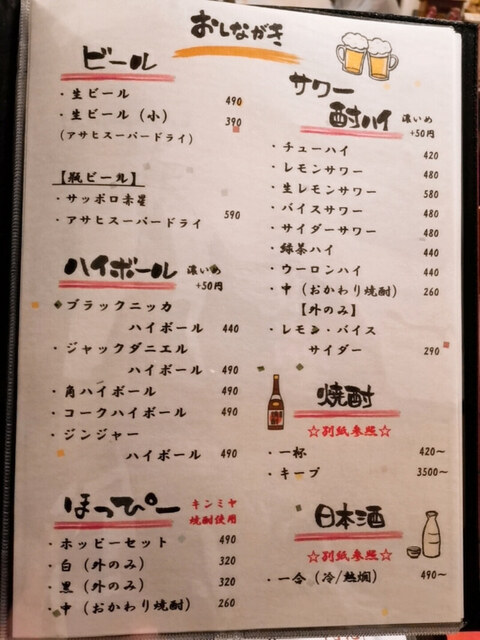 おしながき
ビール
・生ビール 490
・生ビール（小） 390
(アサヒスーパードライ)
【瓶ビール】
・サッポロ赤星
・アサヒスーパードライ 590
ハイボール 濃いめ +50円
・ブラックニッカ
ハイボール 440
・ジャックダニエル
ハイボール 490
・角ハイボール 490
・コークハイボール 490
・ジンジャー
ハイボール 490
ほっぴー キンミヤ焼酎使用
・ホッピーセット 490
・白（外のみ） 320
・黒（外のみ） 320
・中（おかわり焼酎） 260
サワー
酎ハイ 濃いめ +50円
・チューハイ 420
・レモンサワー 480
・生レモンサワー 580
・バイスサワー 480
・サイダーサワー 480
・緑茶ハイ 440
・ウーロンハイ 440
・中（おかわり焼酎） 260
【外のみ】
・レモン・バイス
サイダー 290
焼酎
☆別紙参照☆
・一杯 420～
・キープ 3500～
日本酒
☆別紙参照☆
・一合（冷/熱燗） 490～